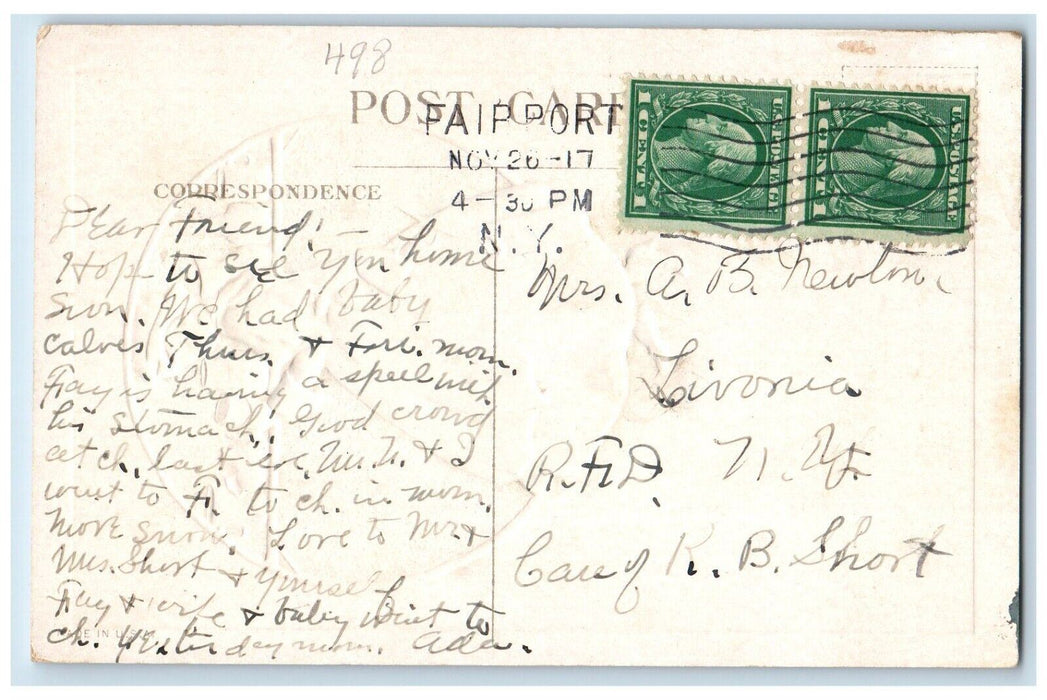 498
POST CAR
FAIRPORT
NOV 26-17
4-30 PM
N.Y.
U.S. POSTAGE
1 CENT 1
U.S. POSTAGE
1 CENT 1
CORRESPONDENCE
Dear Friend! -
Hope to see you home
soon. We had baby
calves Thurs. & Fri. morn.
Fay is having a spell with
his stomach. Good crowd
at ch. last eve. Mr. N. & I
went to F. to ch. in morn.
More snow. Love to Mr. &
Mrs. Short & yourself
Fay & wife & baby went to
ch. yesterday morn. Ada.
Mrs. A. B. Newton
Livonia
R.F.D. N.Y.
Care of R. B. Short
DE IN U.S.